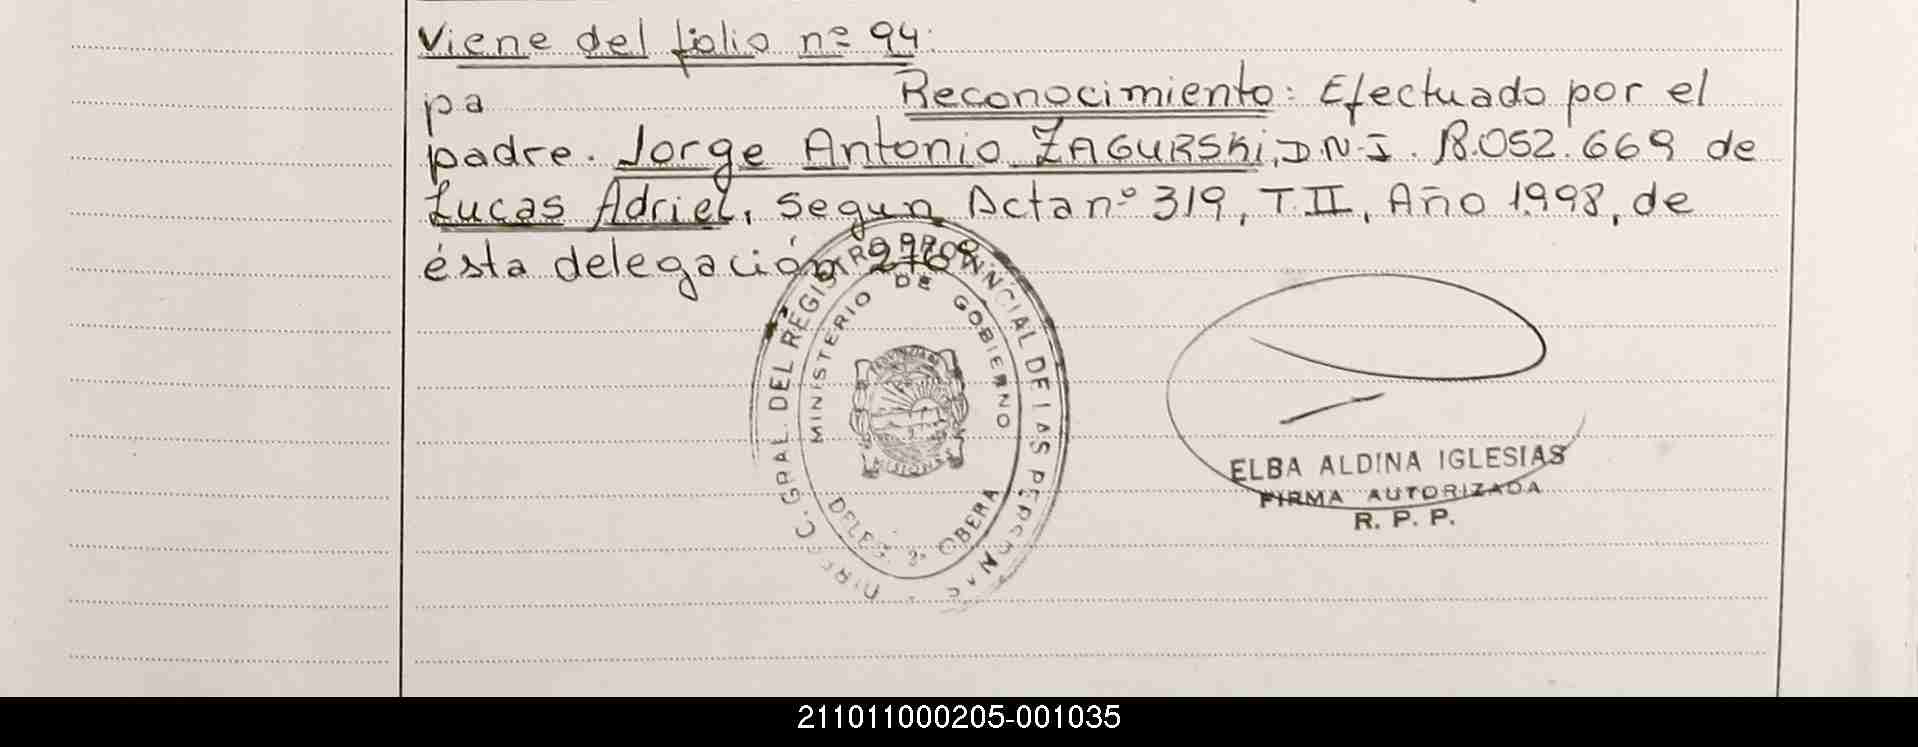 Viene del folio nº 94:
pa Reconocimiento: Efectuado por el
padre. Jorge Antonio ZAGURSKi, D.N.I. 18.052.669 de
Lucas Adriel, segun Acta nº 319, T.II, Año 1.998, de
ésta delegación
DIREC. GRAL. DEL REGISTRO PROVINCIAL DE LAS PERSONAS
MINISTERIO DE GOBIERNO
MISIONES
DELEG. OBERA
ELBA ALDINA IGLESIAS
FIRMA AUTORIZADA
R. P. P.
211011000205-001035